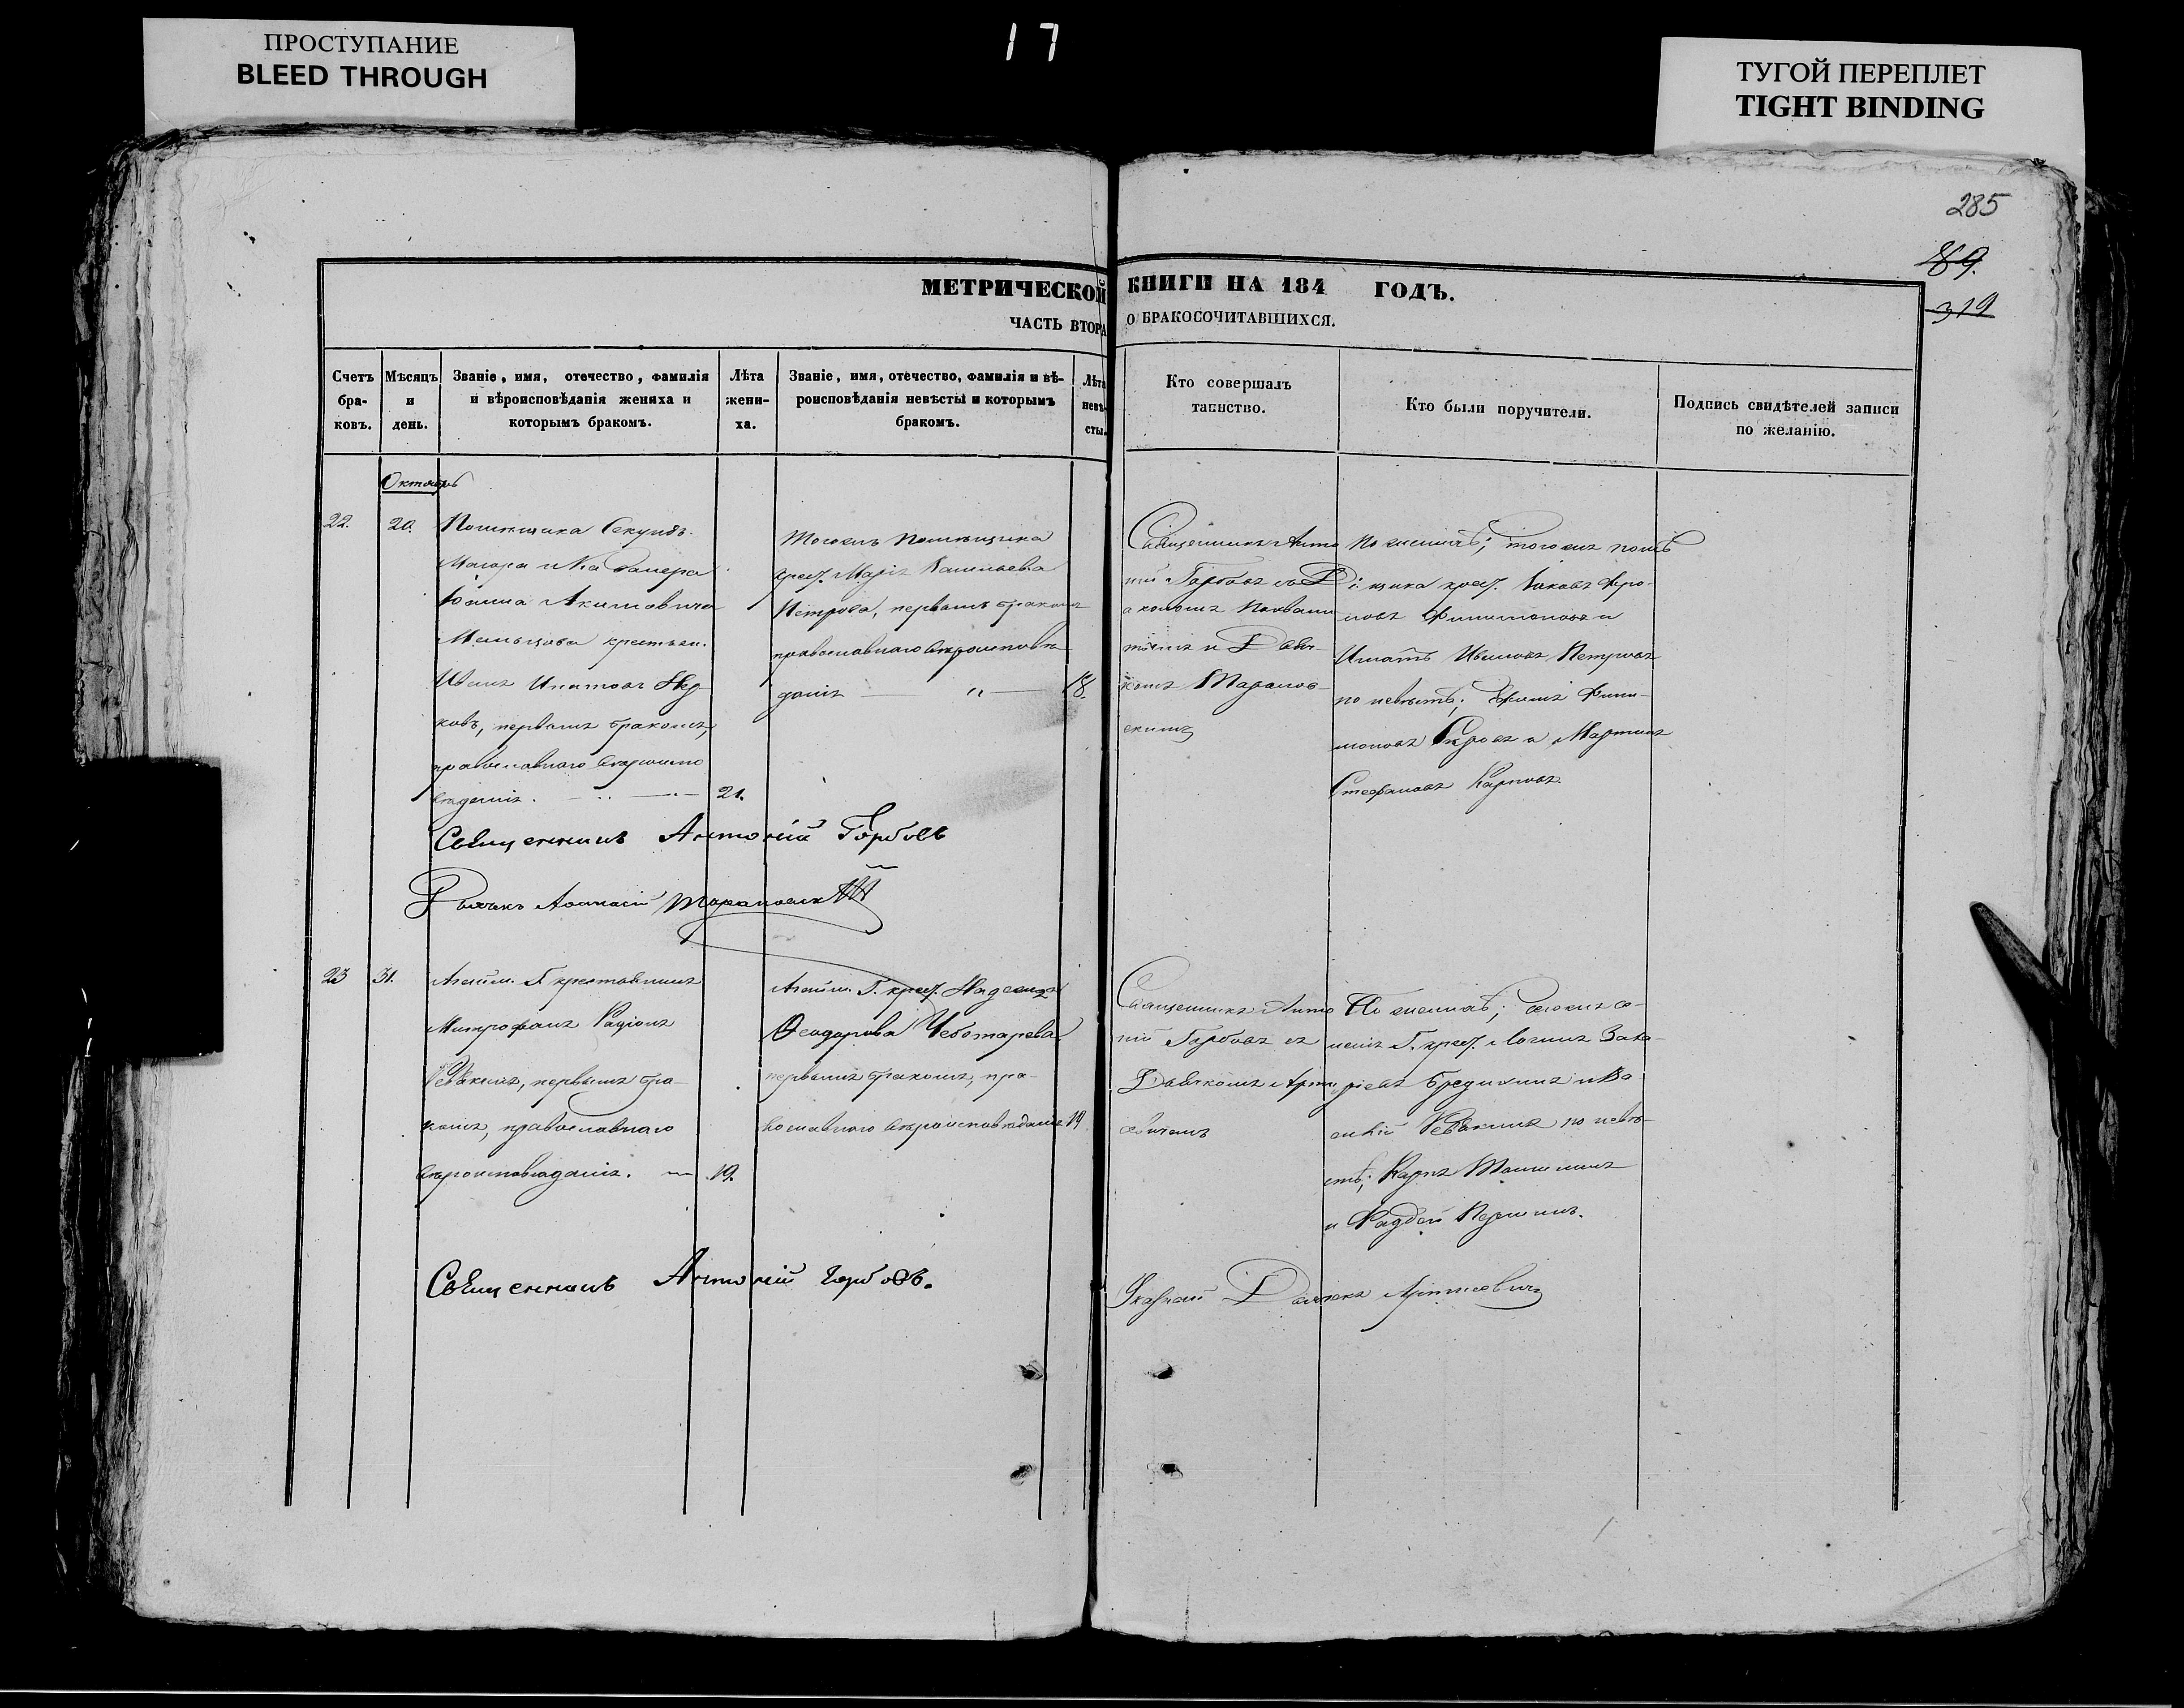 ПРОСТУПАНИЕ
BLEED THROUGH
17
ТУГОЙ ПЕРЕПЛЕТ
TIGHT BINDING
285
89.
319
МЕТРИЧЕСКОЙ КНИГИ НА 184 ГОДЪ.
ЧАСТЬ ВТОРА О БРАКОСОЧИТАВШИХСЯ.
Счетъ бра-ковъ.
Мѣсяцъ и день.
Званіе, имя, отечество, фамилія
и вѣроисповѣданія жениха и
которымъ бракомъ.
Лѣта
жени-
ха.
Званіе, имя, отечество, фамилія и вѣ-
роисповѣданія невѣсты и которымъ
бракомъ.
Лѣта
невѣ-
сты.
Кто совершалъ
таинство.
Кто были поручители.
Подпись свидѣтелей записи
по желанію.
Октябрь
22.
20.
Помѣщика Секундъ
Маіора и Кавалера
Іоанна Акимовича
Мальцова крестьян.
Иванъ Ипатовъ
ковъ, первымъ бракомъ,
православнаго вѣроиспо
вѣданія.
21.
Тогожъ помѣщика
крест. Марія Васильева
Петрова, первымъ бракомъ
православнаго вѣроисповѣ
данія
18.
Священникъ Анто
ній Горбовъ съ Ді
акономъ
и Дьяч-
комъ Таранов-
скимъ
По женихѣ; тогожъ помѣ
щика крест. Іаковъ
Филимоновъ и
Ипатъ Ивановъ Петровъ
по невѣстѣ; Фили-
моновъ и Мартинъ
Стефановъ Карповъ.
Священникъ Антоній Горбовъ
Дьячекъ Тарановскій
23
31.
Г. крестьянинъ
Митрофанъ Радіонъ
Ревякинъ, первымъ бра-
комъ, православнаго
вѣроисповѣданія.
19.
Г. крест. Надежда
Ѳеодорова Чеботарева
первымъ бракомъ, пра-
вославнаго вѣроисповѣданія
19
Священникъ Анто
ній Горбовъ съ
Дьячкомъ
По женихѣ; селенія
Г. крест. Логинъ Заха-
ріевъ Бредихинъ и Ва
силій Ревякинъ по невѣ-
стѣ; Карпъ
и
Священникъ Антоній Горбовъ.
Указной Дьячекъ